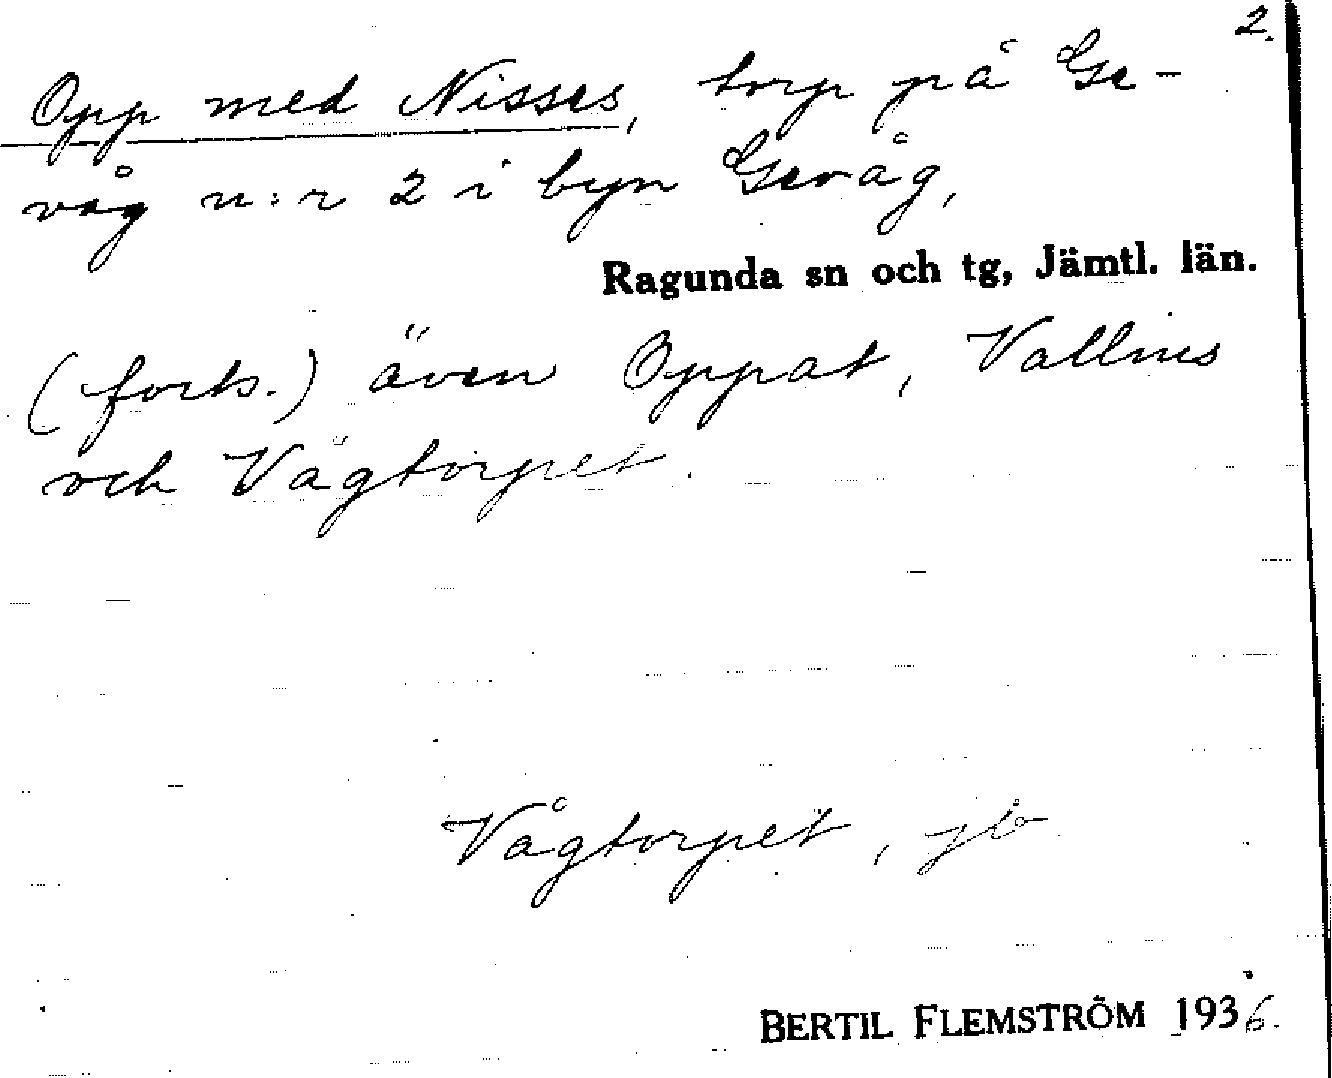 2.
Opp med Nisses, torp på Ge-
våg n:r 2 i byn Gevåg,
Ragunda sn och tg, Jämtl. län.
(forts.) även Oppat, Vallnes
och Vågtorpet.
Vågtorpet, jb
BERTIL FLEMSTRÖM 1936.